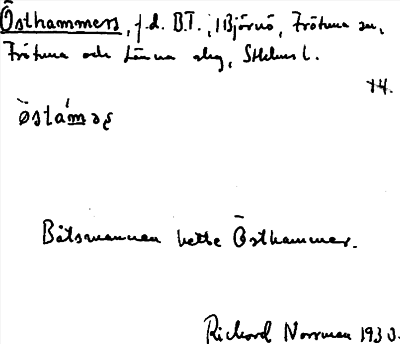 Östhammers, f.d. B.T., i Björnö, Frötuna sn,
Frötuna och Länna skg, Sthlms l.
14.
östámaʂ
Båtsmannen hette Östhammar.
Richard Norrman 1930.